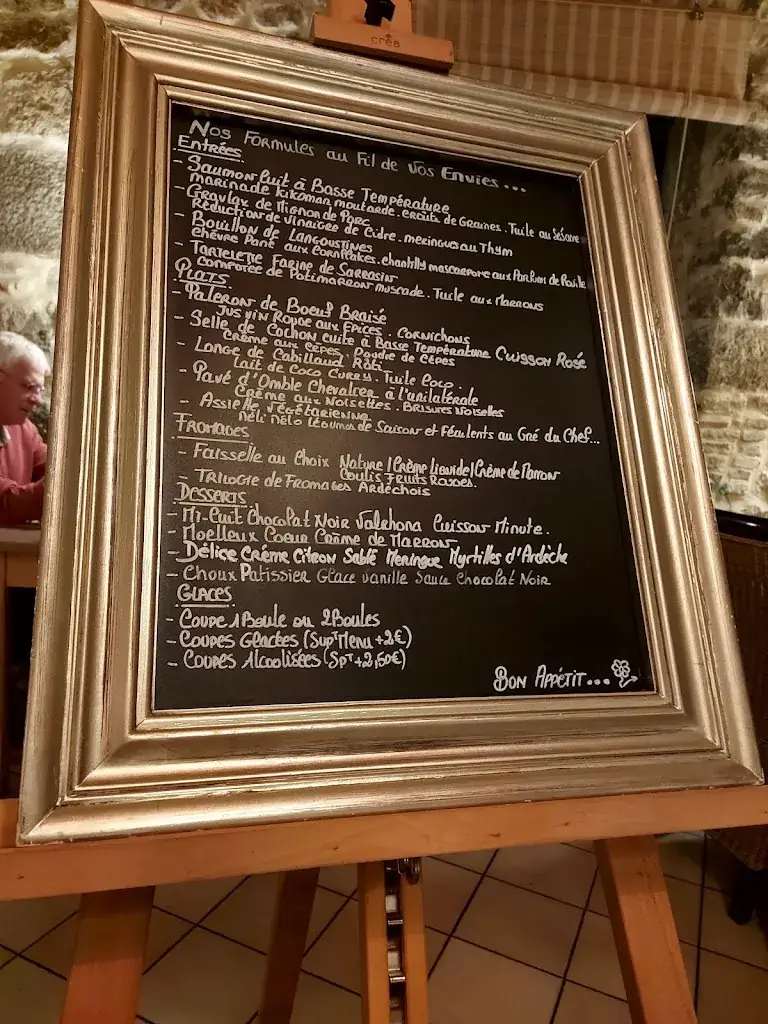 créa
Nos Formules au Fil de Vos Envies...
Entrées
- Saumon Cuit à Basse Température
marinade Kikoman moutarde. croute de Graines. Tuile au Sésame
- Gravlax de Mignon de Porc
Réduction de Vinaigre de Cidre. meringues au Thym
- Bouillon de Langoustines
chèvre Pané aux Cornflakes. chantilly mascarpone aux Parfums de Rouille
- Tartelette Farine de Sarrasin
Compotée de Potimarron muscade. Tuile aux Marrons
Plats
- Paleron de Boeuf Braisé
Jus Vin Rouge aux Epices. Cornichons
- Selle de Cochon cuite à Basse Température Cuisson Rosé
Crème aux Cèpes. Poudre de Cèpes
- Longe de Cabillaud Rôti
Lait de Coco Curry. Tuile Coco.
- Pavé d'Omble Chevalier à l'unilatérale
Crème aux Noisettes. Brisures Noisettes
- Assiette Végétarienne
Méli Mélo Légumes de Saison et Féculents au Gré du Chef...
Fromages
- Faisselle au Choix Nature / Crème Liquide / Crème de Marron
Coulis Fruits Rouges.
- Trilogie de Fromages Ardéchois
Desserts
- Mi-Cuit Chocolat Noir Valrhona Cuisson Minute.
- Moelleux Coeur Crème de Marron
- Délice Crème Citron Sablé Meringue Myrtilles d'Ardèche
- Choux Patissier Glace Vanille Sauce Chocolat Noir
Glaces
- Coupe 1 Boule ou 2 Boules
- Coupes Glacées (Supt Menu +2€)
- Coupes Alcoolisées (Spt +2,50€)
Bon Appétit...